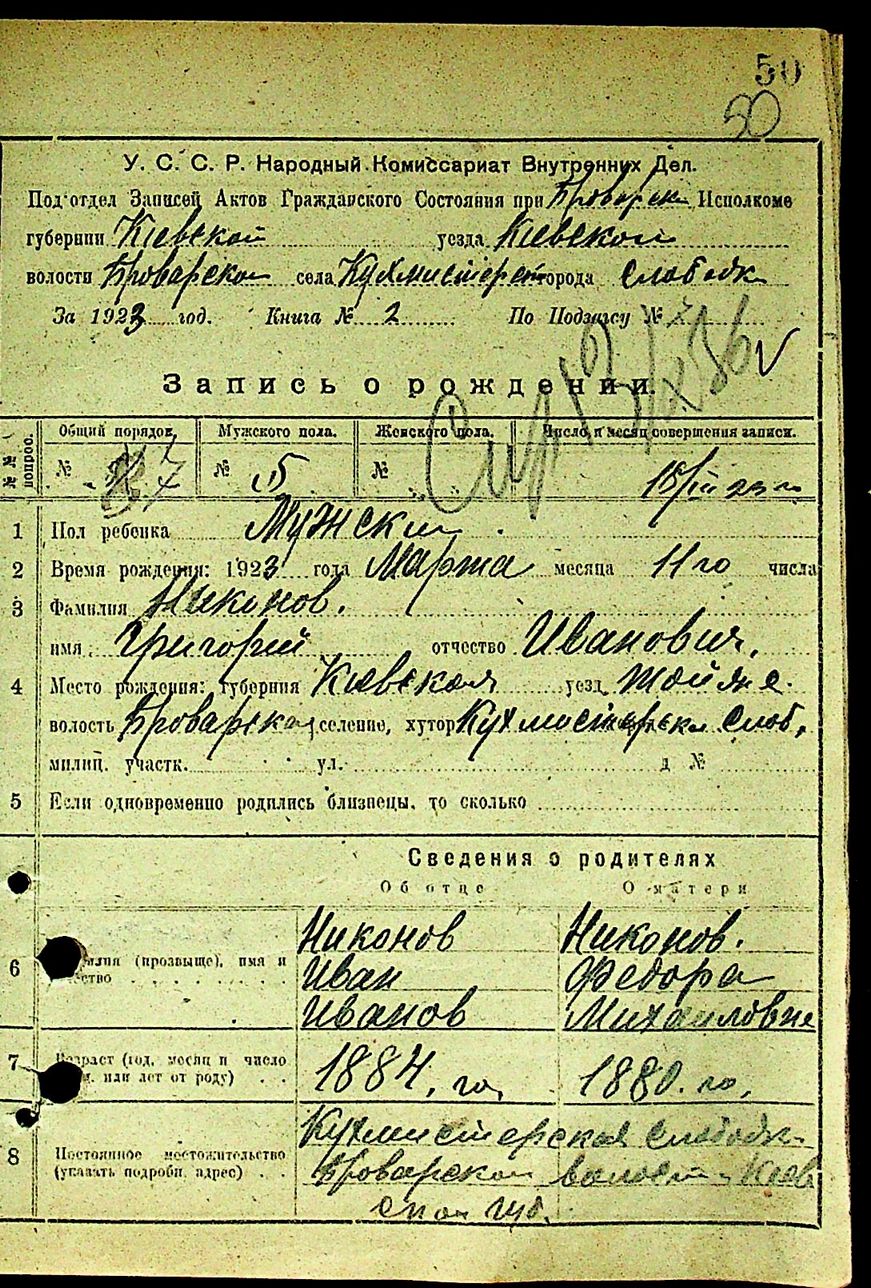 50
50
У. С. С. Р. Народный Комиссариат Внутренних Дел.
Под'отдел Записей Актов Гражданского Состояния при Броварск Исполкоме
губернии Киевской уезда Киевской
волости Броварской села Кухмистерск города Слободк
За 1923 год. Книга № 2 По Подзагсу № 7
Запись о рождении
№№ вопрос. Общий порядов. Мужского пола. Женского пола. Число и месяц совершения записи.
№ 7 № 5 № 18/III 23 г
1 Пол ребенка Мужской
2 Время рождения: 1923 года Марта месяца 11 го числа
3 Фамилия Никонов.
имя Григорий отчество Иванович.
4 Место рождения: губерния Киевская уезд
волость Броварская селение, хутор Кухмистерска Слоб.
милиц. участк. ул. д №
5 Если одновременно родились близнецы, то сколько
Сведения о родителях
Об отце О матери
6 милия (прозвыще), имя и
ство
Никонов Никонов.
Иван Федора
Иванов Михаиловна
7 Возраст (год, месяц и число
или лет от роду)
1884. го, 1880. го,
8 Постоянное местожительство
(указать подробн. адрес)
Кухмистерская Слободк
Броварской волости Киев
ской губ.